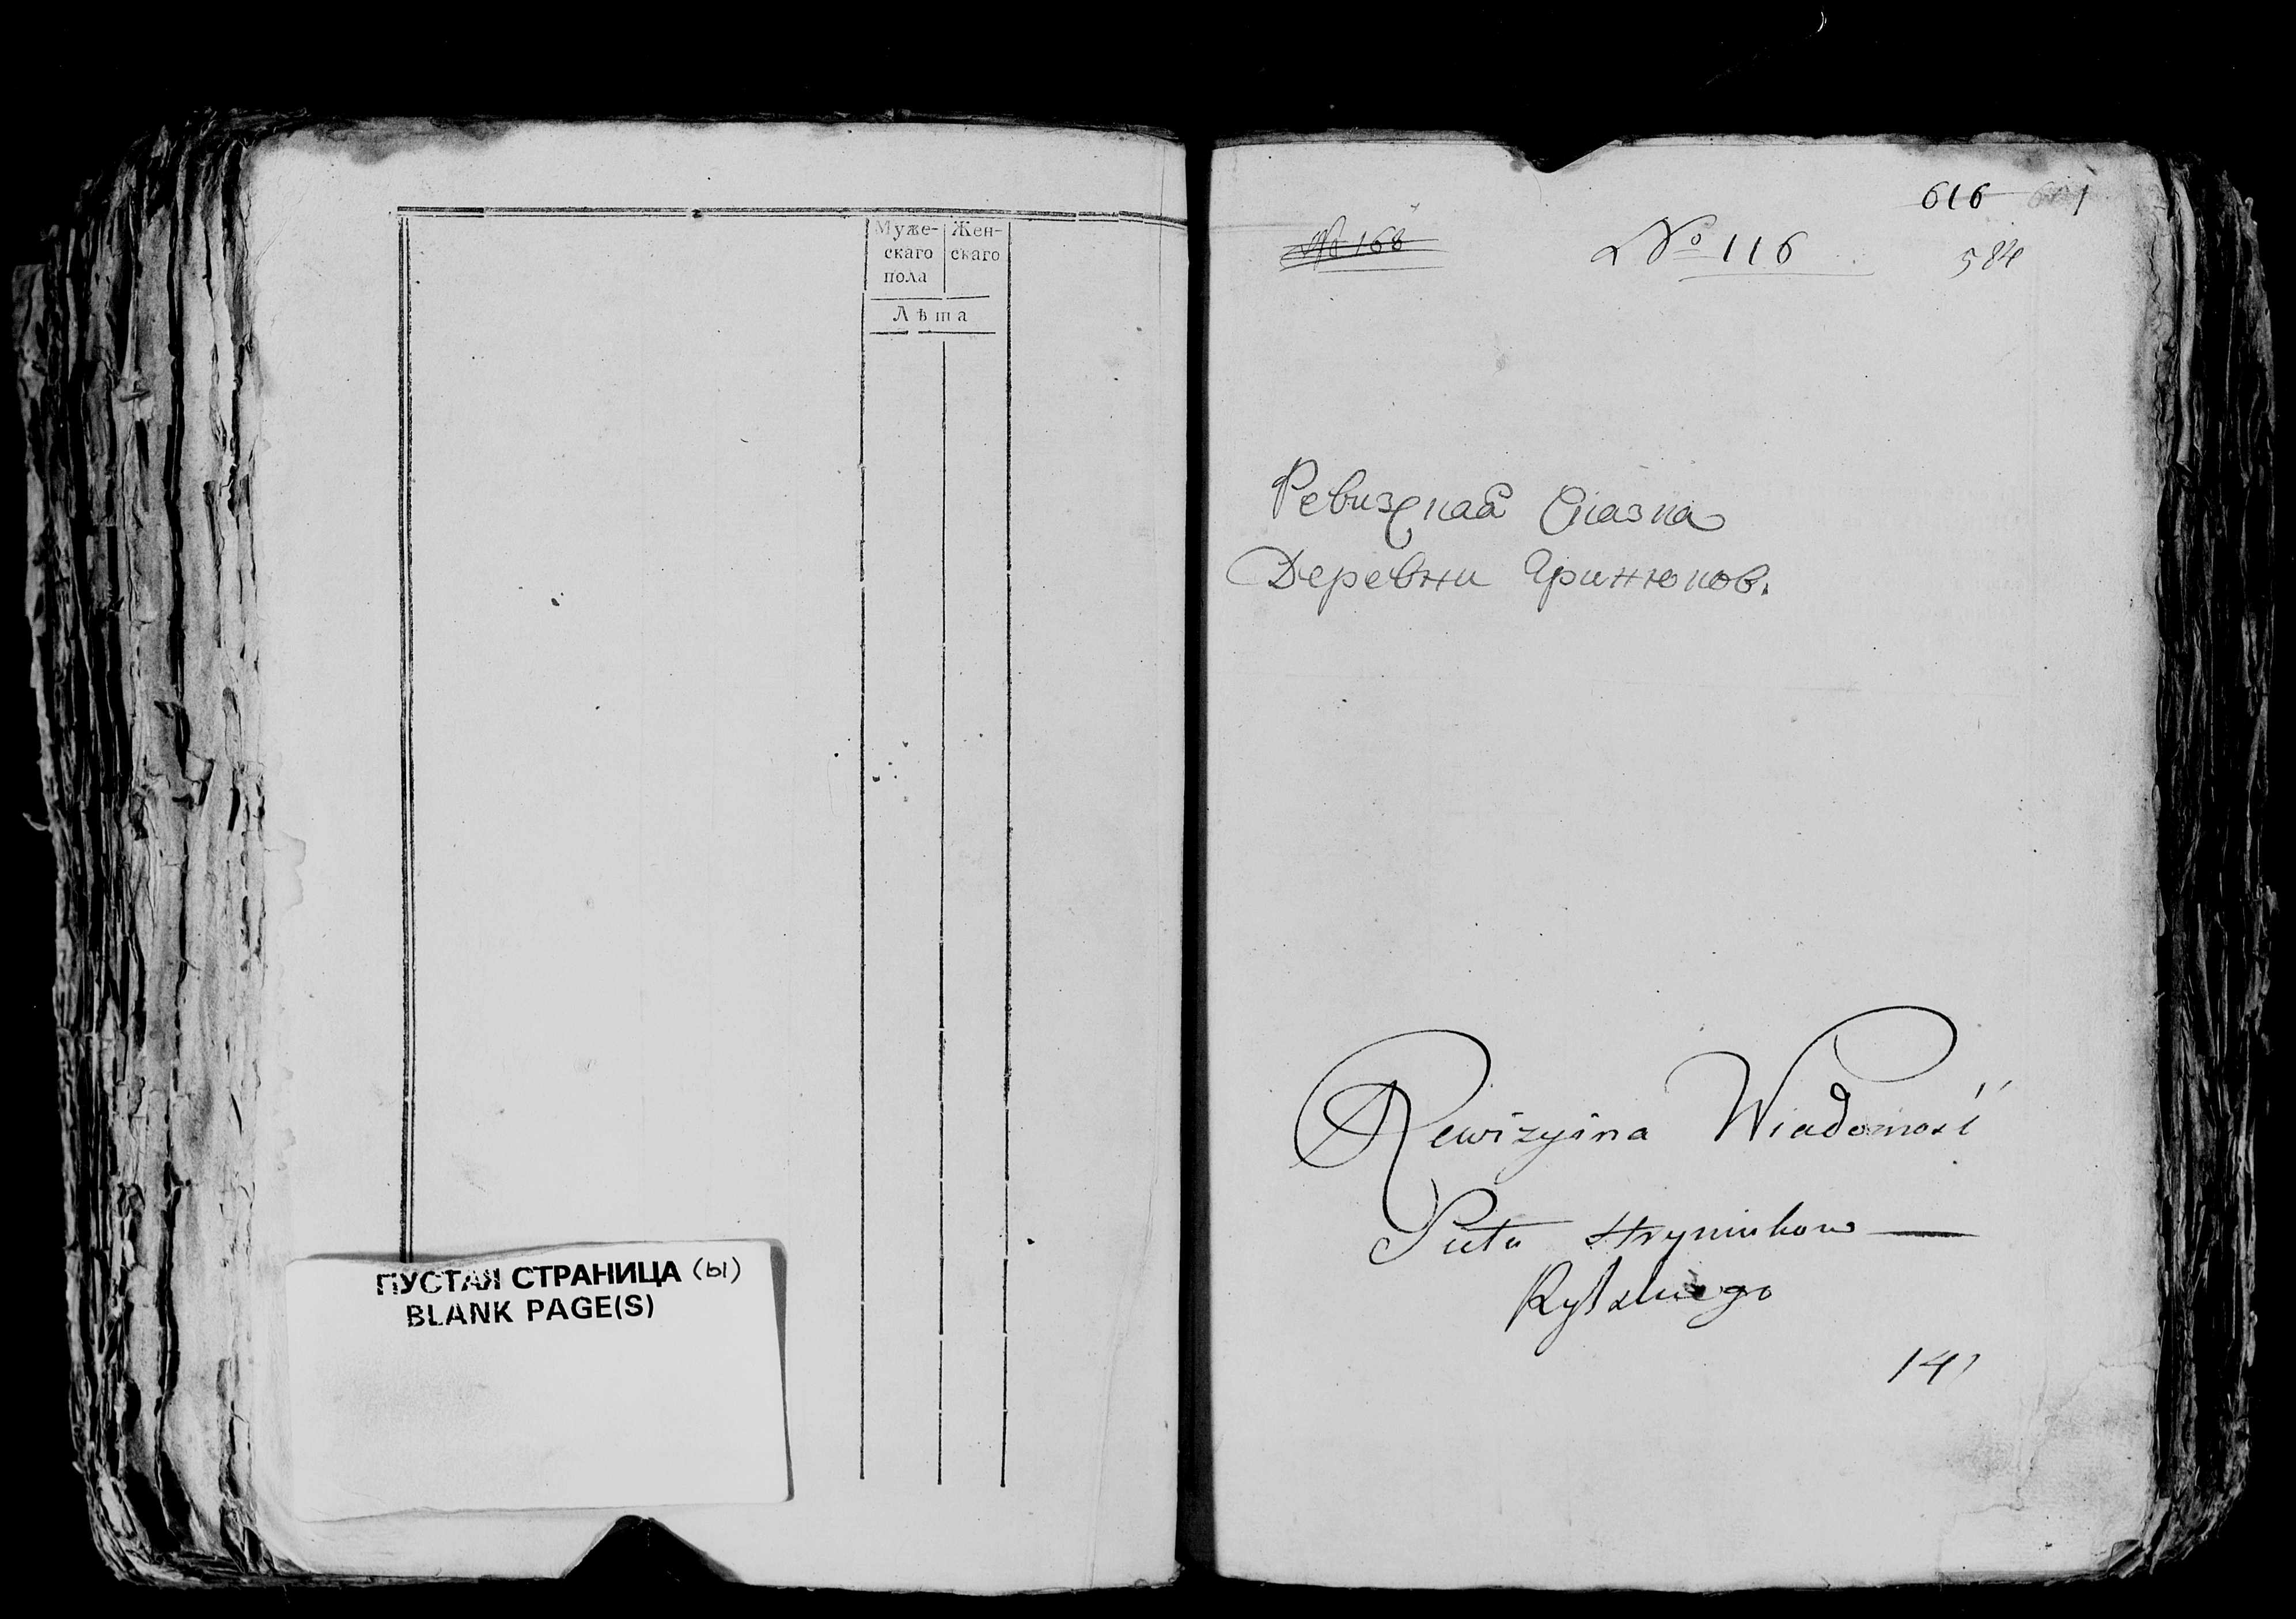 Муже-
скаго
пола
Жен-
скаго
Лѣта
ПУСТАЯ СТРАНИЦА (ы)
BLANK PAGE(S)
616
№ 168
№ 116
584
Ревизская Сказка
Деревни Гринюков.
Rewizyina Wiadomość
Hryniukow
141